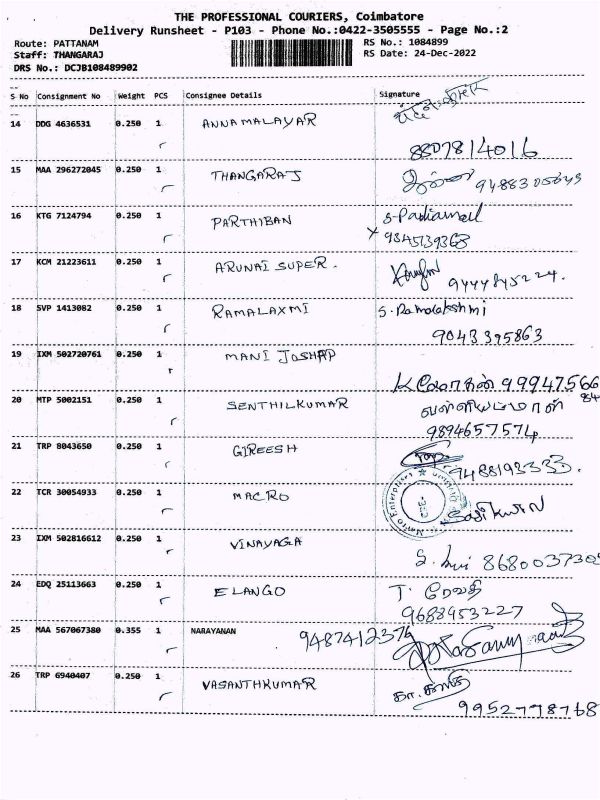 THE PROFESSIONAL COURIERS, Coimbatore
Delivery Runsheet - P103 - Phone No.:0422-3505555 - Page No.:2
Route: PATTANAM
RS No.: 1084899
Staff: THANGARAJ
RS Date: 24-Dec-2022
DRS No.: DCJB108489902
S No Consignment No Weight PCS Consignee Details Signature
14 DDG 4636531 0.250 1 ANNAMALAYAR
8807814016
15 MAA 296272045 0.250 1 THANGARAJ
16 KTG 7124794 0.250 1 PARTHIBAN
9345139368
17 KCM 21223611 0.250 1 ARUNAI SUPER.
9444845224.
18 SVP 1413082 0.250 1 RAMALAXMI S. Ramalakshmi
9043395863
19 IXM 502720761 0.250 1 MANI JOSHAP
20 MTP 5002151 0.250 1 SENTHILKUMAR வள்ளியம்மாள்
9894657574
21 TRP 8043650 0.250 1 GIREESH
9488193333.
22 TCR 30054933 0.250 1 MACRO
23 IXM 502816612 0.250 1 VINAYAGA
24 EDQ 25113663 0.250 1 ELANGO T. ரேவதி
9688953227
25 MAA 567067380 0.355 1 NARAYANAN 9487412376
26 TRP 6940407 0.250 1 VASANTHKUMAR
9952778768